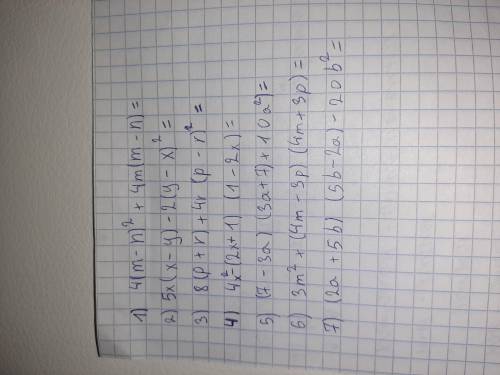 1) 4(m-n)² + 4m(m-n)=
2) 5x(x-y)-2(y-x)²=
3) 8(p+r)+4r(p-r)²=
4) 4x²-(2x+1) (1-2x)=
5) (7-3a) (3a+7)+10a²)=
6) 3m²+(4m-3p) (4m+3p)=
7) (2a+5b) (5b-2a)-20b²=